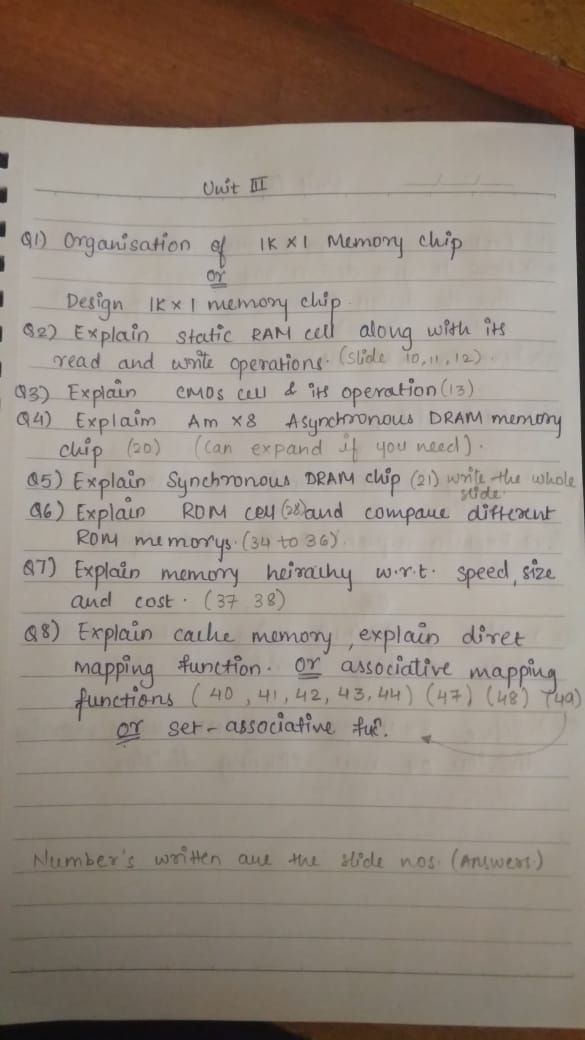 Unit III
Q1) Organisation of 1K X 1 Memory chip
or
Design 1K x 1 memory chip.
Q2) Explain static RAM cell along with its
read and write operations. (Slide 10, 11, 12).
Q3) Explain CMOS cell & its operation (13)
Q4) Explaim Am x8 Asynchronous DRAM memory
chip (20) (Can expand if you need).
Q5) Explain Synchronous DRAM chip (21) write the whole
slide.
Q6) Explain ROM cell (28) and compaue different
ROM memorys. (34 to 36)
Q7) Explain memory heirachy w.r.t. speed, size
and cost. (37 38)
Q8) Explain cache memory, explain diret
mapping function. or associative mapping
functions (40, 41, 42, 43, 44) (47) (48) (49)
or set-associative fuc.
Number's written aue the slide nos. (Answers)